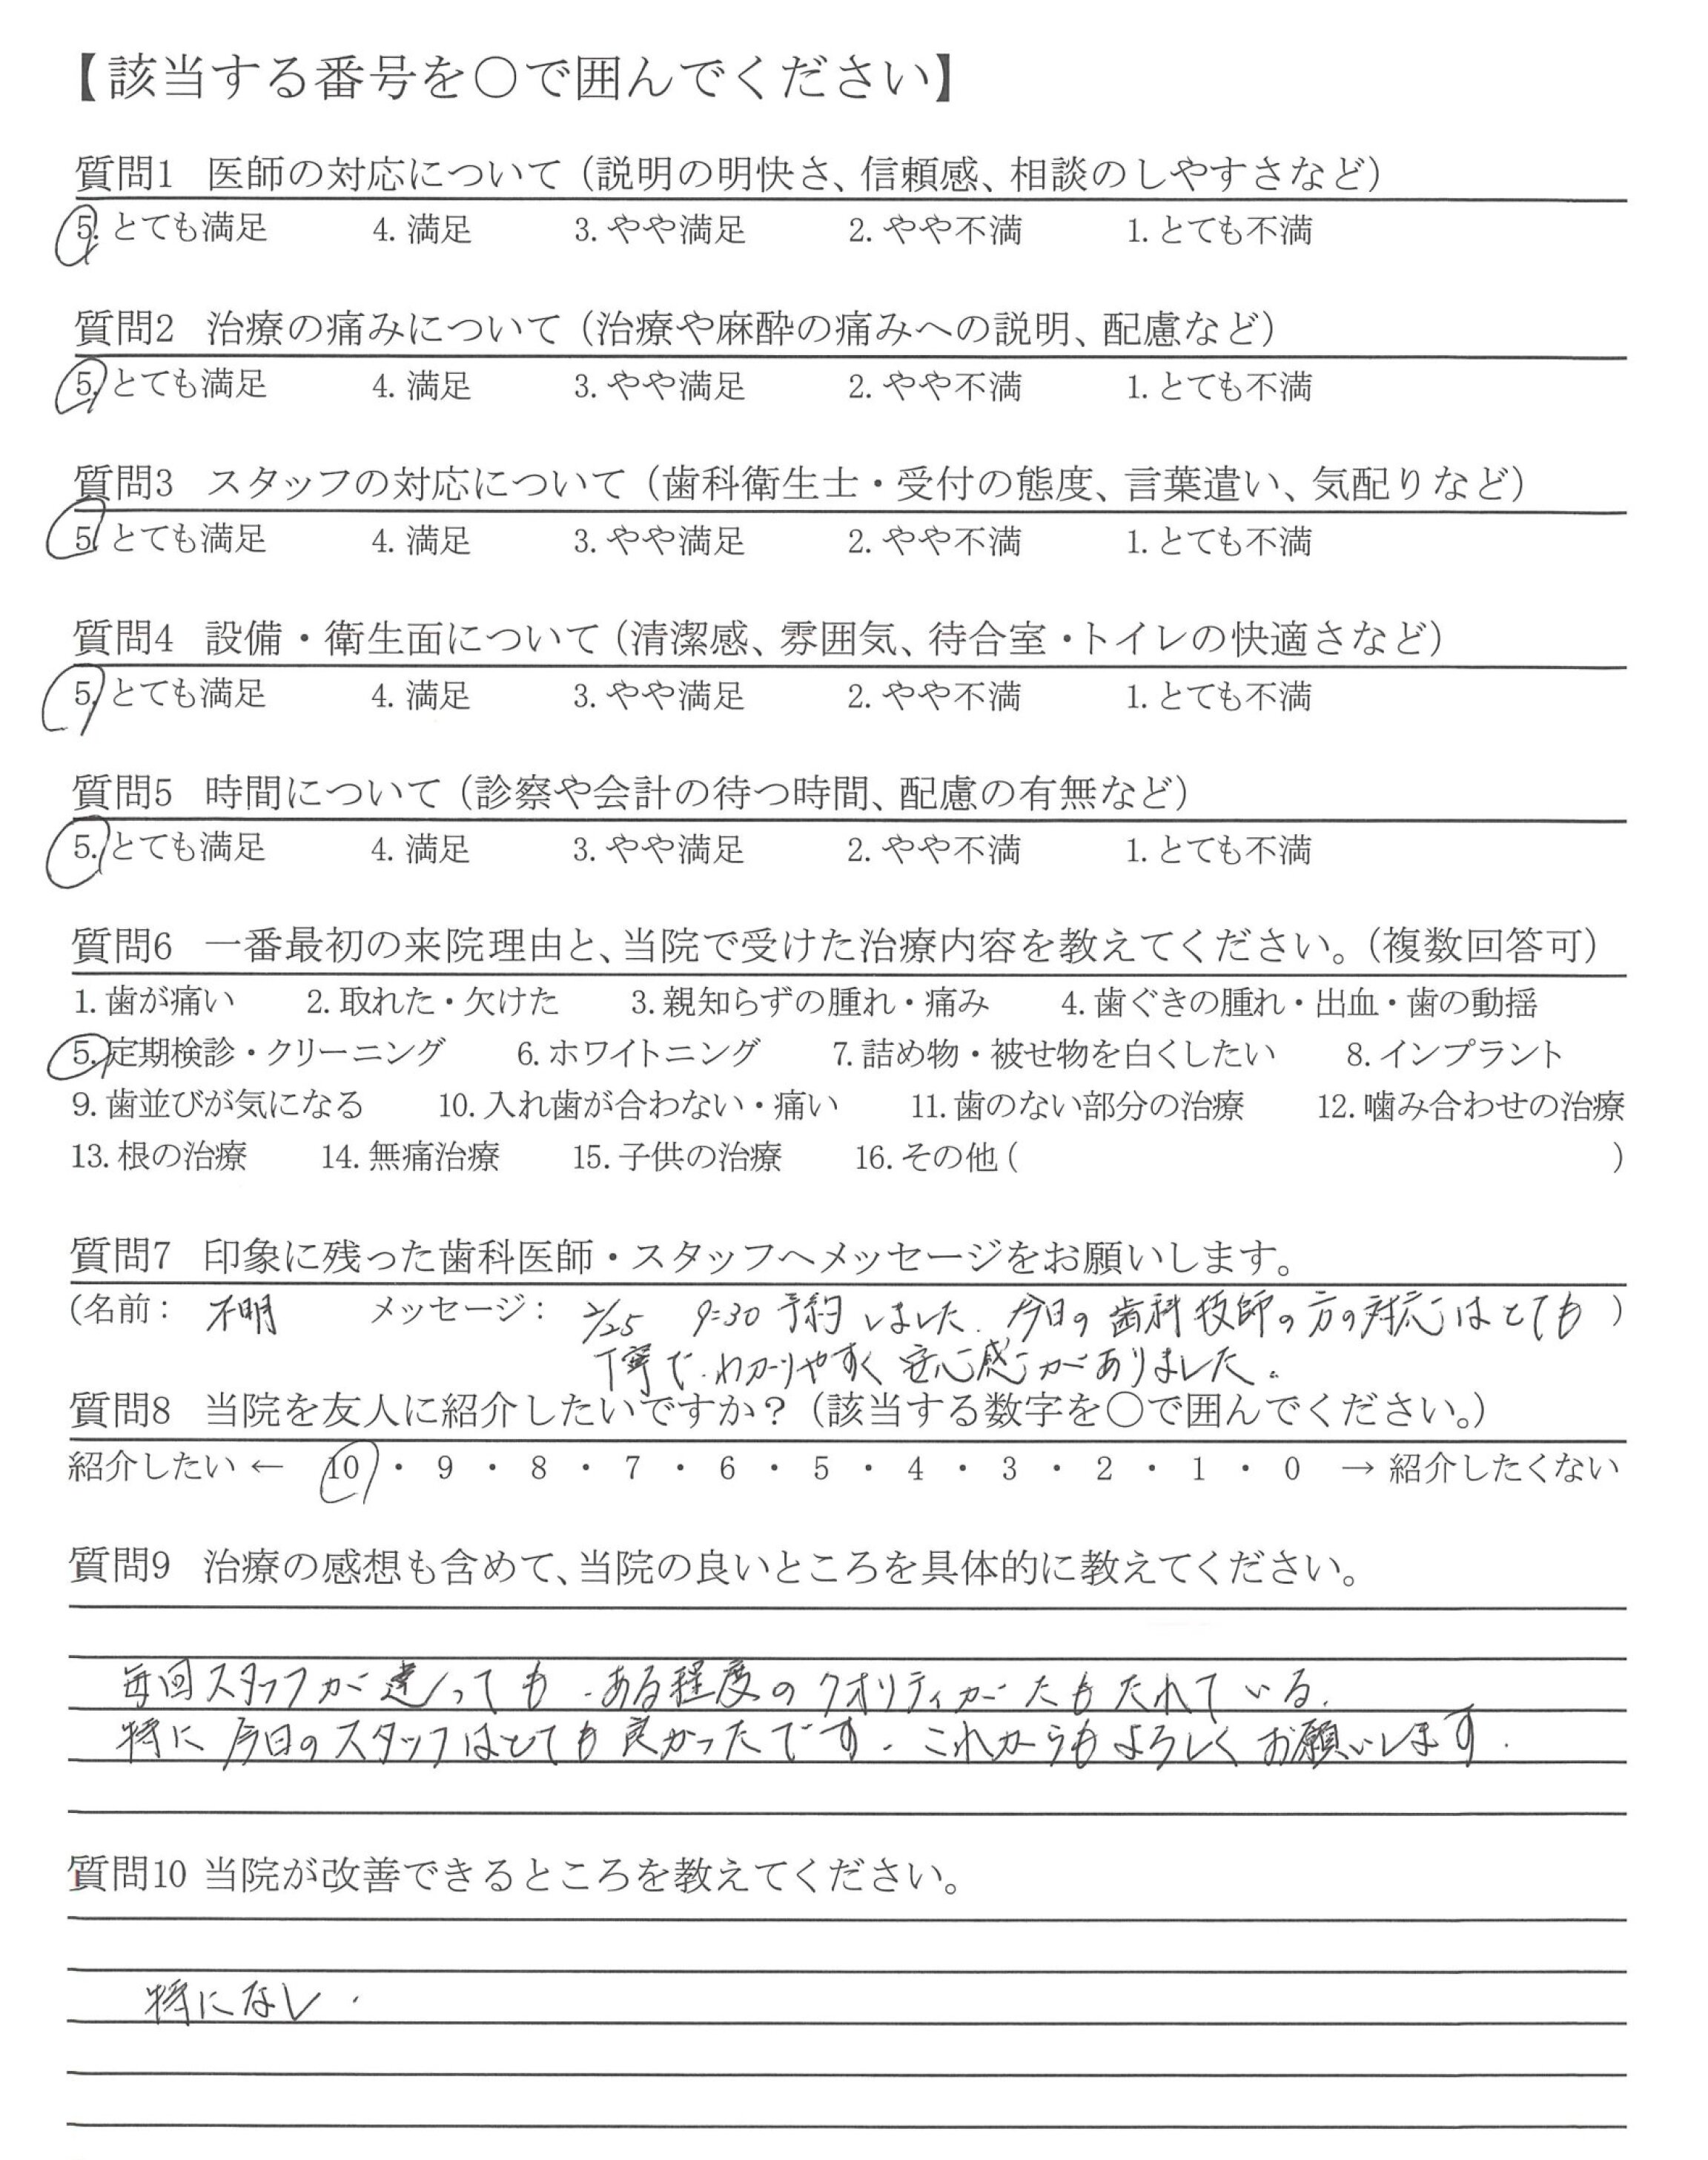 【該当する番号を○で囲んでください】
質問1 医師の対応について（説明の明快さ、信頼感、相談のしやすさなど）
5. とても満足 4. 満足 3. やや満足 2. やや不満 1. とても不満
質問2 治療の痛みについて（治療や麻酔の痛みへの説明、配慮など）
5. とても満足 4. 満足 3. やや満足 2. やや不満 1. とても不満
質問3 スタッフの対応について（歯科衛生士・受付の態度、言葉遣い、気配りなど）
5. とても満足 4. 満足 3. やや満足 2. やや不満 1. とても不満
質問4 設備・衛生面について（清潔感、雰囲気、待合室・トイレの快適さなど）
5. とても満足 4. 満足 3. やや満足 2. やや不満 1. とても不満
質問5 時間について（診察や会計の待つ時間、配慮の有無など）
5. とても満足 4. 満足 3. やや満足 2. やや不満 1. とても不満
質問6 一番最初の来院理由と、当院で受けた治療内容を教えてください。（複数回答可）
1. 歯が痛い 2. 取れた・欠けた 3. 親知らずの腫れ・痛み 4. 歯ぐきの腫れ・出血・歯の動揺
5. 定期検診・クリーニング 6. ホワイトニング 7. 詰め物・被せ物を白くしたい 8. インプラント
9. 歯並びが気になる 10. 入れ歯が合わない・痛い 11. 歯のない部分の治療 12. 噛み合わせの治療
13. 根の治療 14. 無痛治療 15. 子供の治療 16. その他 ( )
質問7 印象に残った歯科医師・スタッフへメッセージをお願いします。
（名前： 不明 メッセージ： 2/25 9:30 予約しました. 今日の歯科技師の方の対応はとても ）
丁寧で. わかりやすく 安心感がありました。
質問8 当院を友人に紹介したいですか？（該当する数字を○で囲んでください。）
紹介したい ← 10 ・ 9 ・ 8 ・ 7 ・ 6 ・ 5 ・ 4 ・ 3 ・ 2 ・ 1 ・ 0 → 紹介したくない
質問9 治療の感想も含めて、当院の良いところを具体的に教えてください。
毎回スタッフが違っても. ある程度のクオリティがたもたれている.
特に今日のスタッフはとても良かったです. これからもよろしくお願いします.
質問10 当院が改善できるところを教えてください。
特になし.